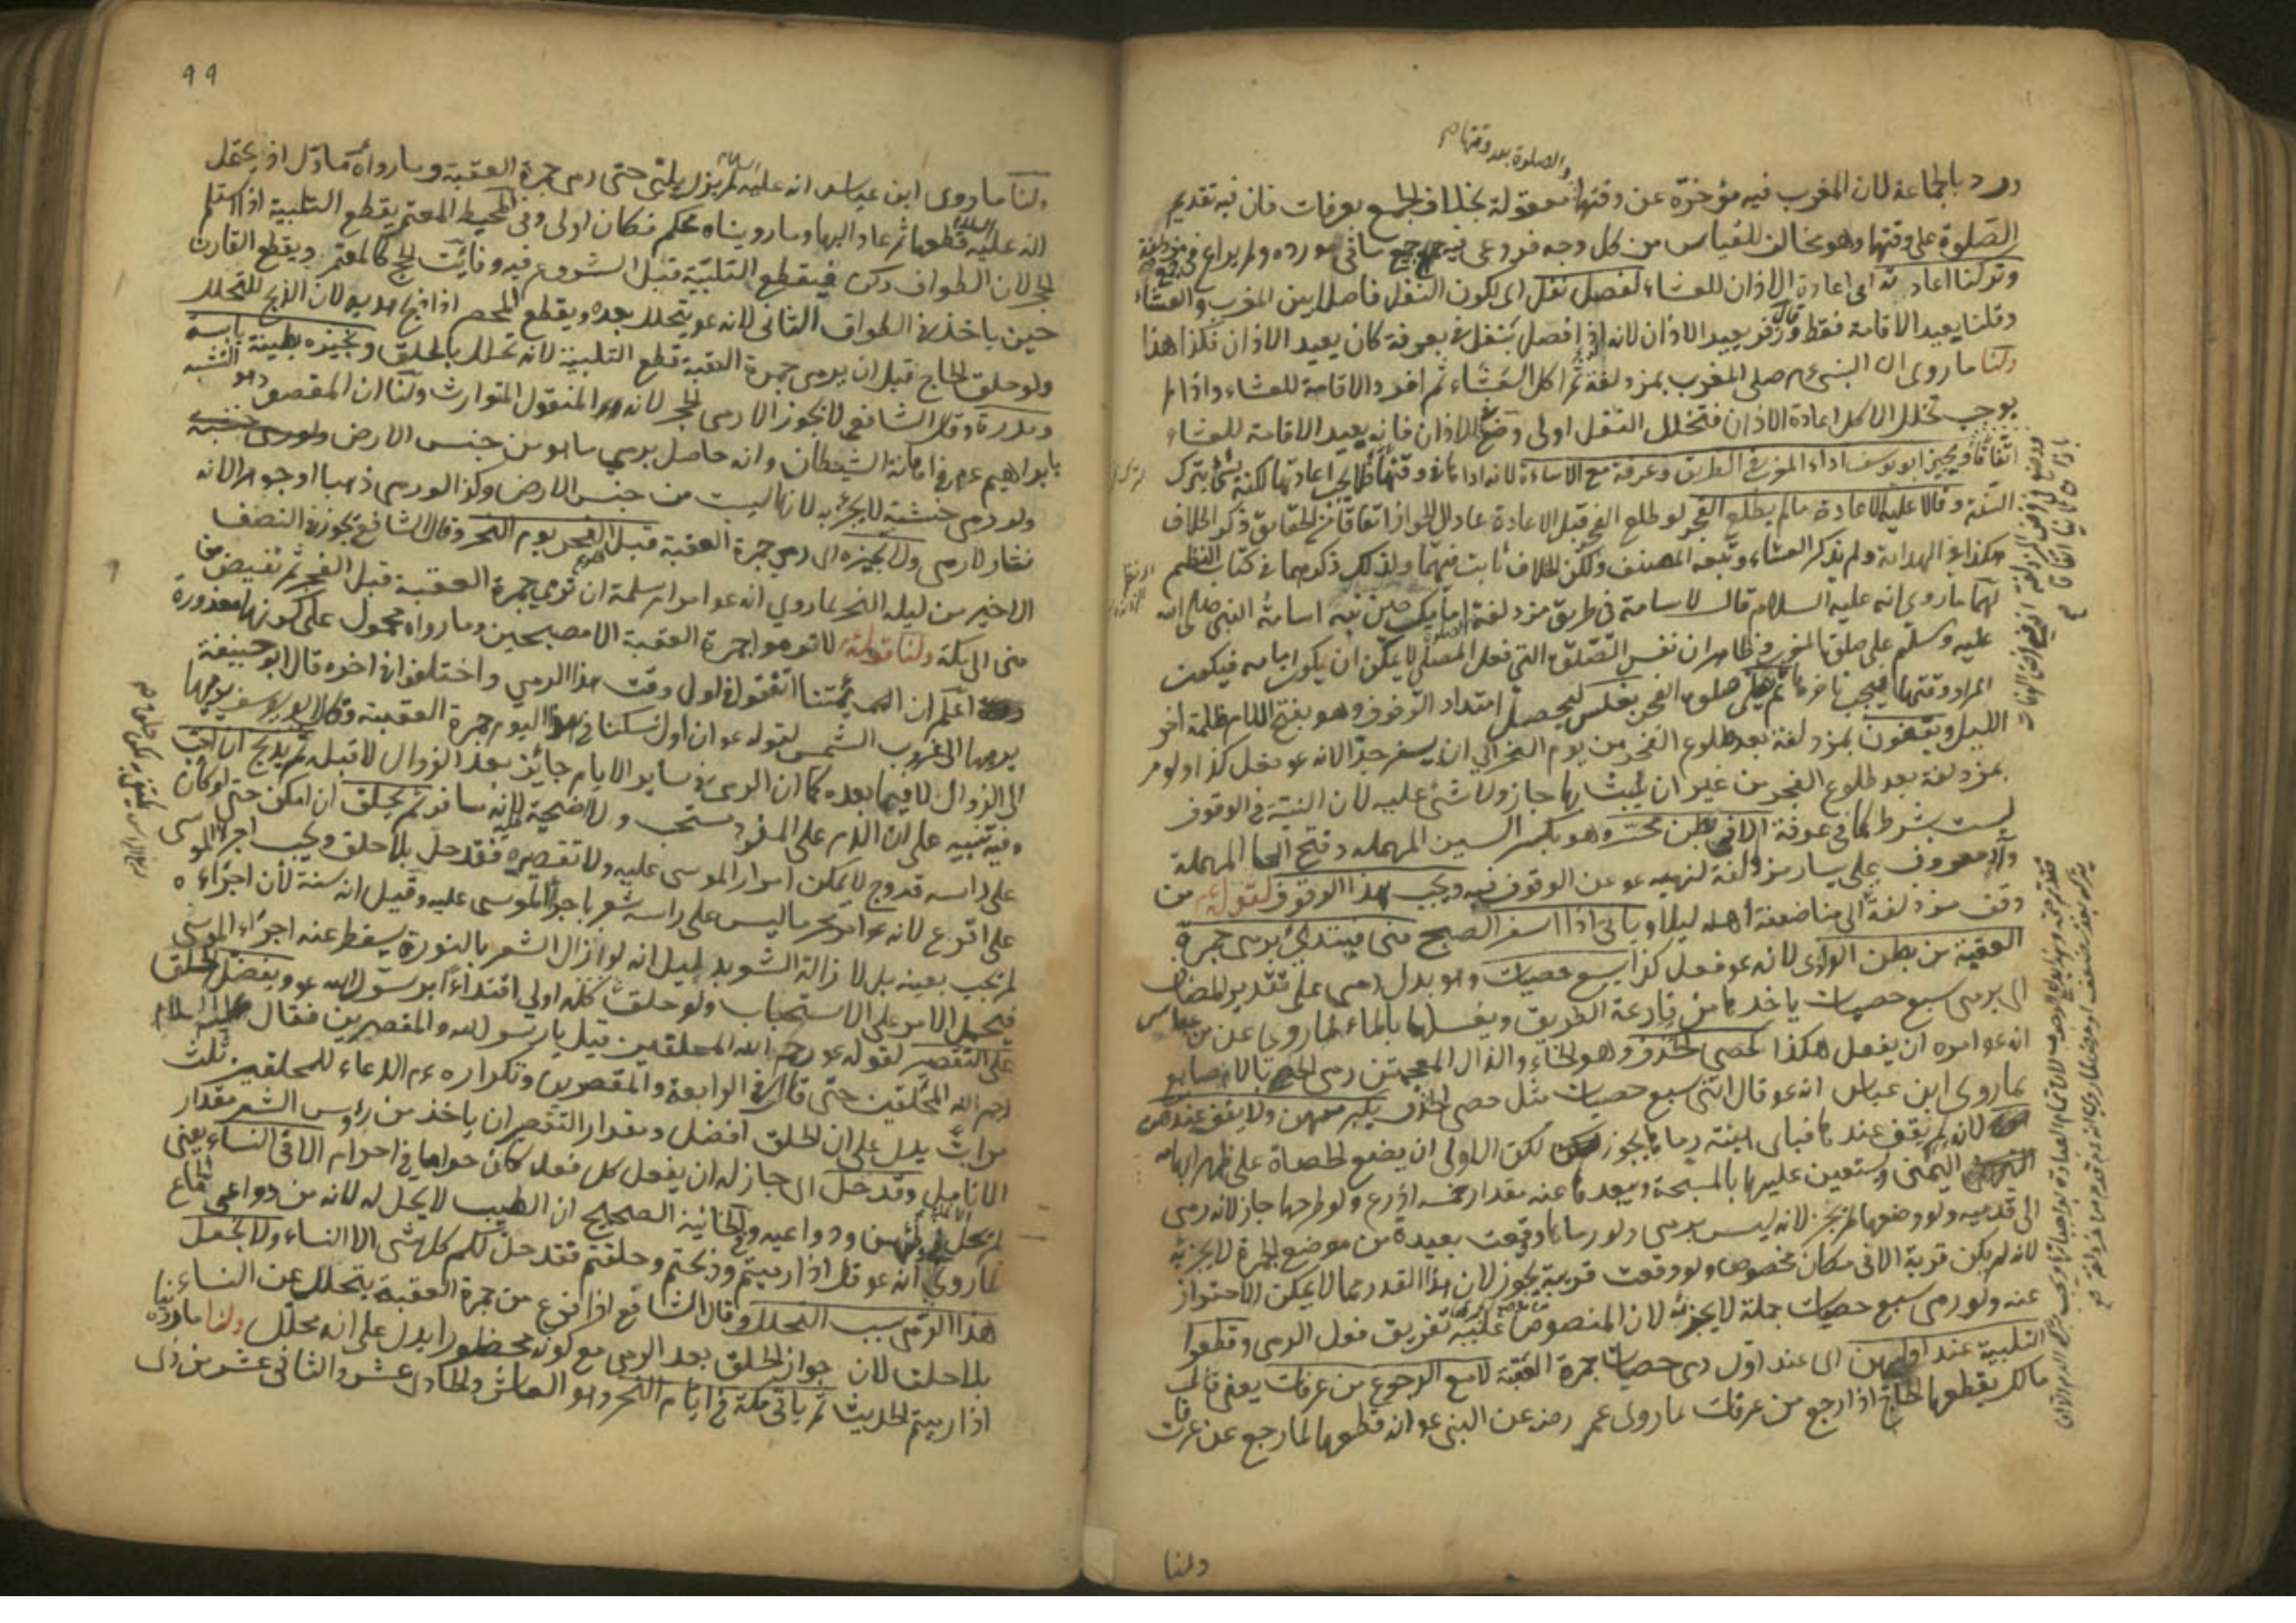 والصلوة بعد وقتها
ورد بالجماعة لان المغرب فيه مؤخرة عن وقتها معقولة بخلاف الجمع بعرفات فان فيه تقديم
الصلوة على وقتها وهو مخالف للقياس من كل وجه فروعى فيه جميع ما فى مورده ولم يراع فى
وتركنا اعادته اى اعادة الاذان للعشاء لفصل نفل اى لكون النفل فاصلا بين المغرب والعشاء
وقلنا يعيد الاقامة فقط وقال زفر يعيد الاذان لانه اذا فصل بتنفل بعرفة كان يعيد الاذان فكذا هذا
ولنا ما روى ان النبى ءم صلى المغرب بمزدلفة ثم اكل العشاء ثم افرد الاقامة للعشاء واذا لم
يوجب تخلل الاكل اعادة الاذان فتخلل النفل اولى وضع الاذان فانه يعيد الاقامة للعشاء
اتفاقا ويجيز ابو يوسف اداء المغرب فى الطريق وعرفة مع الاساءة لانه اداها فى وقتها فلا يجب اعادتها لكنه يسئ بترك
السنة وقالا عليه الاعادة ما لم يطلع الفجر لو طلع الفجر قبل الاعادة عاد الى الجواز اتفاقا من الحقايق ذكر الخلاف
هكذا فى الهداية ولم يذكر العشاء وتبعه المصنف ولكن الخلاف ثابت فيهما ولذلك ذكرهما فى كتاب النظم
لهما ما روى انه عليه السلام قال لاسامة فى طريق مزدلفة امامك حين نبه اسامة النبى صلى الله
عليه وسلم على صلوة المغرب وظاهر ان نفس الصلوة التى فعل المصلى لا يمكن ان يكون امامه فيكون
المراد وقتها فيجب تاخرها ثم يصلى صلوة الفجر بغلس ليحصل امتداد الوقوف وهو بفتح اللام ظلمة اخر
الليل ويقفون بمزدلفة بعد طلوع الفجر من يوم النحر الى ان يسفر جدا لانه عو فعل كذا ولو مر
بمزدلفة بعد طلوع الفجر من غير ان يلبث بها جاز ولا شئ عليه لان النية فى الوقوف
ليست بشرط كما فى عرفة الا فى بطن محسر وهو بكسر السين المهملة وفتح الحا المهملة
واد معروف على يسار مزدلفة لنهيه عو عن الوقوف فيه ويجب هذا الوقوف لقوله ءم من
وقف مزدلفة الى منا ضعفة اهله ليلا وياتى اذا اسفر الصبح منى فيبتدئ برمى جمرة
العقبة من بطن الوادى لانه عو فعل كذا بسبع حصيات وهو بدل رمى على تقدير المضاف
اى برمى سبع حصيات ياخذها من قارعة الطريق ويغسلها بالماء لما روى عن ابن عباس
انه عو امره ان يفعل هكذا كحصى الخذف وهو الخاء والذال المعجمتين رمى الحصى بالاصابع
لما روى ابن عباس انه عو قال ائتنى سبع حصيات مثل حصى الخذف يكبر معهن ولا يقف عندهن
لانه لم يقف عندها فباى هيئة رماها يجوز لكن الاولى ان يضع الحصاة على ظهر ابهامه
اليمنى وتستعين عليها بالمسبحة وبعدها عنه مقدار خمسة اذرع ولو طرحها جاز لانه رمى
الى قدميه ولو وضعها لم يجز لانه ليس برمى ولو رماها فوقعت بعيدة من موضع الجمرة لا يجزيه
لانه لم يكن قربة الا فى مكان مخصوص ولو وقعت قريبة يجوز لان هذا القدر مما لا يمكن الاحتراز
عنه ولو رمى سبع حصيات جملة لا يجزئه لان المنصوص عليه تفريق فعل الرمى وقطعوا
التلبية عند اولهن اى عند اول رمى حصيات جمرة العقبة لا مع الرجوع من عرفات يعنى قال
مالك يقطعها الحاج اذا رجع من عرفات لما روى عمر رضه عن النبى عو انه قطعها لما رجع عن عرفات
ولنا
٩٩
ولنا ما روى ابن عباس انه عليه السلام لم يزل يلبى حتى رمى جمرة العقبة وما رواه ماول اذ يحتمل
انه عليه السلام قطعها ثم عاد اليها وما رويناه محكم فكان اولى وفى المحيط المعتمر يقطع التلبية اذا استلم
الحجر لان الطواف ركن فيقطع التلبية قبل الشروع فيه وفائت الحج كالمعتمر ويقطع القارن
حين ياخذ فى الطواف الثانى لانه عو يتحلل بعده ويقطع المحصر اذا ذبح هديه لان الذبح للتحلل
ولو حلق الحاج قبل ان يرمى جمرة العقبة قطع التلبية لانه تحلل بالحلق ويجيزه بطينة يابسة
ومدرة وقال الشافعى لا يجوز الا رمى الحجر لانه هو المنقول المتوارث ولنا ان المقصود هو التشبه
بابراهيم عم فى اهانة الشيطان وانه حاصل برمى ما هو من جنس الارض
ولو رمى خشبة لا يجزئه لانها ليست من جنس الارض وكذا لو رمى ذهبا او جوهرا لانه
نثار لا رمى ولا يجيزه اى رمى جمرة العقبة قبل الفجر يوم النحر وقال الشافع يجوز فى النصف
الاخير من ليلة النحر لما روى انه عو امر ام سلمة ان ترمى جمرة العقبة قبل الفجر ثم تفيض من
منى الى مكة ولنا قوله ءم لا ترموا جمرة العقبة الا مصبحين وما رواه محمول على كونها معذورة
اعلم ان ائمتنا اتفقوا فى اول وقت هذا الرمى واختلفوا فى اخره قال ابو حنيفة
يرميها الى غروب الشمس لقوله عو ان اول نسكنا فى هذا اليوم جمرة العقبة وقال ابو يوسف يرميها
الى الزوال لا فيما بعده كما ان الرمى فى ساير الايام جائز بعد الزوال لا قبله ثم يذبح ان احب
وفيه تنبيه على ان الدم على المفرد مستحب ولا اضحية عليه لانه مسافر ثم يحلق ان امكن حتى لو كان
على راسه قروح لا يمكن امرار الموسى عليه ولا تقصيره فقد حل بلا حلق ويجب اجراء الموسى
على اقرع لانه عو امر محرما ليس على راسه شعر باجراء الموسى عليه وقيل انه سنة لأن اجراءه
لم يجب بعينه بل لازالة الشعر بدليل انه لو ازال الشعر بالنورة يسقط عنه اجراء الموسى
فيحمل الامر على الاستحباب ولو حلق كله اولى اقتداء برسول الله عو ويفضل الحلق
على التقصير لقوله عو رحم الله المحلقين قيل يا رسول الله والمقصرين فقال عليه السلام
رحم الله المحلقين حتى قال فى الرابعة والمقصرين وتكراره ءم الدعاء للمحلقين ثلث
مرات يدل على ان الحلق افضل ومقدار التقصير ان ياخذ من رؤس الشعر مقدار
الانامل وقد حل اى جاز له ان يفعل كل فعل كان حراما فى احرام الا فى النساء يعنى
لم تحل ودواعيه وفى الخانية الصحيح ان الطيب لا يحل له لانه من دواعى الجماع
لما روى انه عو قال اذا رميتم وذبحتم وحلقتم فقد حل لكم كل شئ الا النساء ولا نجعل
هذا الرمى سبب التحلل وقال الشافع اذا فرغ من جمرة العقبة يتحلل عن النساء
بلا حلق لان جواز الحلق بعد الرمى مع كونه محظورا يدل على انه محلل ولنا ما روينا
اذا رميتم الحديث ثم ياتى مكة فى ايام النحر وهو العاشر والحادى عشر والثانى عشر من ذى